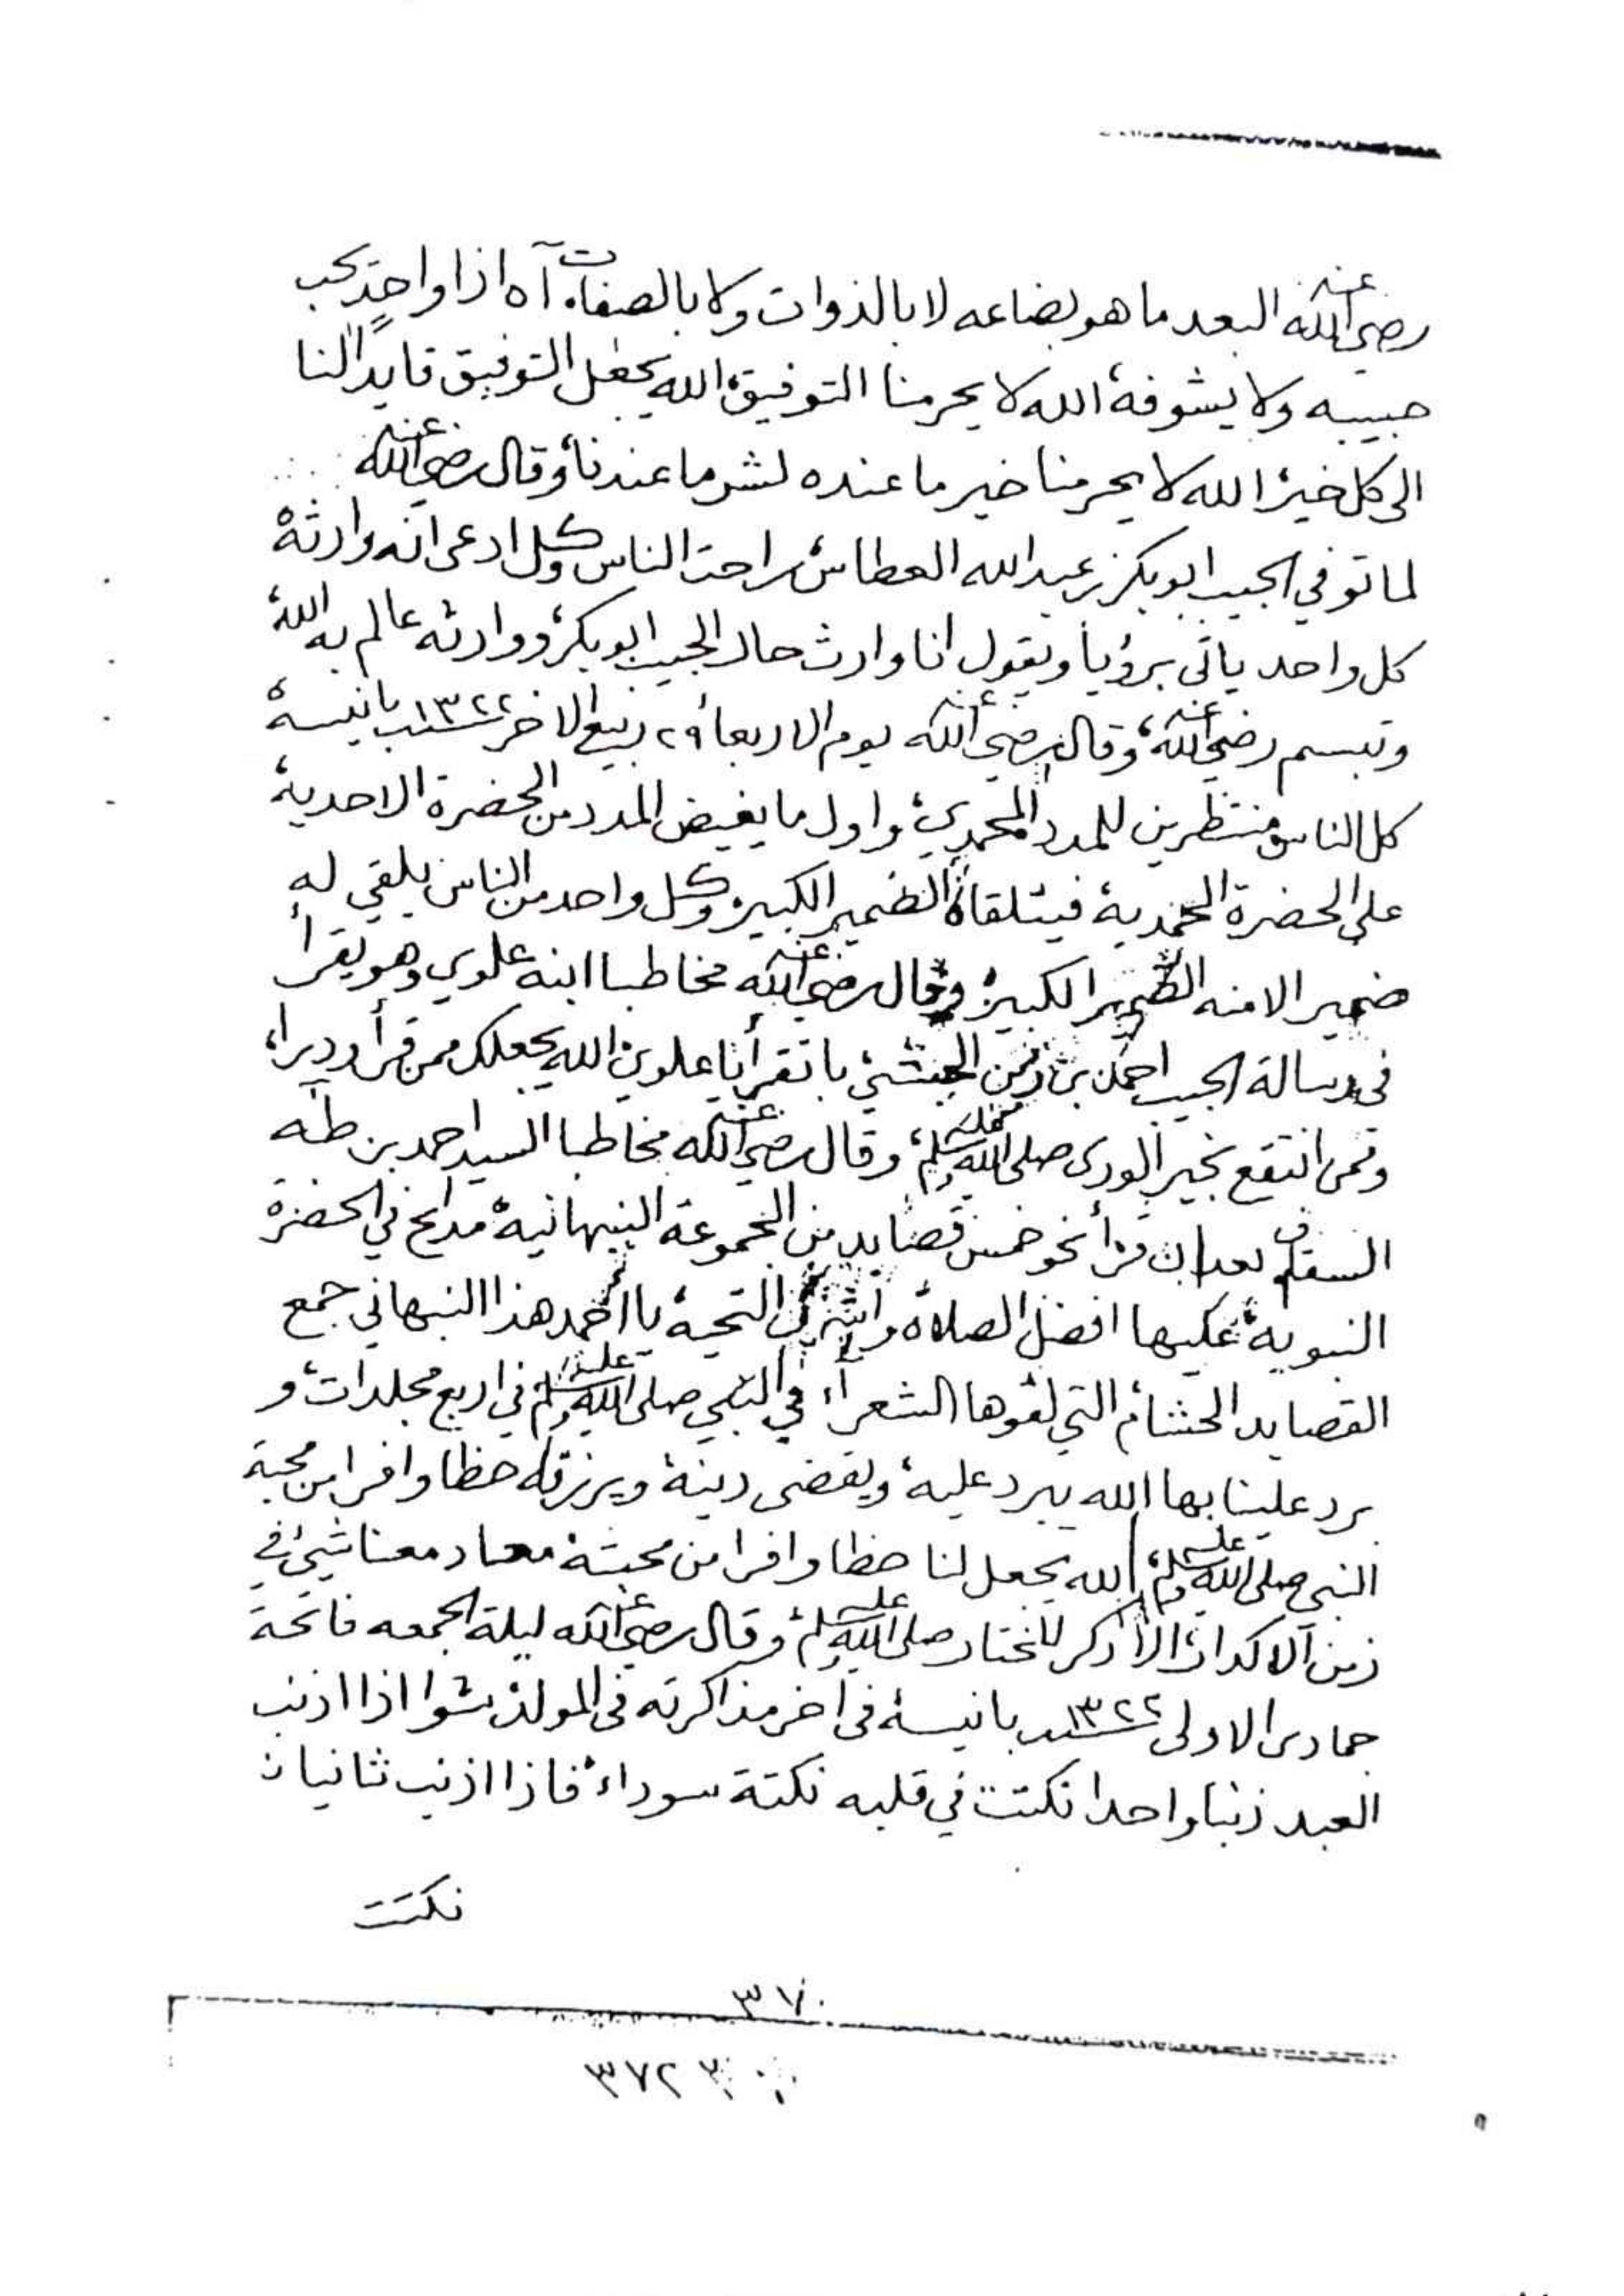 رضي الله عنه البعد ما هو بضاعه لا بالذوات ولا بالصفات آه اذا واحد يحب
حبيبه ولا يشوفه الله لا يحرمنا التوفيق الله يجعل التوفيق قايدا لنا
الى كل خير الله لا يحرمنا خير ما عنده لشر ما عندنا وقال رضي الله عنه
لما توفي الحبيب ابو بكر بن عبد الله العطاس راحت الناس وكل ادعى انه وارثه
كل واحد ياتي برؤيا ويقول انا وارث حال الحبيب ابو بكر ووارثه عالم به الله
وتبسم رضي الله عنه وقال رضي الله عنه يوم الاربعاء ٢٩ ربيع الاخر سنة ١٣٢٢ بانيسه
كل الناس منتظرين للمدد المحمدي واول ما يفيض المدد من الحضرة الاحدية
على الحضرة المحمدية فيتلقاه الضمير الكبير وكل واحد من الناس يلقي له
ضمير الا منه الضمير الكبير وقال رضي الله عنه مخاطبا ابنه علوي وهو يقرأ
في رسالة الحبيب احمد بن زين الحبشي با تقرأ يا علوي الله يجعلك ممن قرأ ودرا
وممن انتفع بخير الورى صلى الله عليه وسلم وقال رضي الله عنه مخاطبا السيد احمد بن طه
السقاف بعد ان قرأ نحو خمس قصايد من المجموعة النبهانية مدايح في الحضرة
النبوية عليها افضل الصلاة واشرف التحية يا احمد هذا النبهاني جمع
القصايد الحشام التي لقوها الشعراء في النبي صلى الله عليه وسلم في اربع مجلدات و
برد علينا بها الله يبرد عليه ويقضى دينه ويرزقه حظا وافرا من محبة
النبي صلى الله عليه وسلم الله يجعل لنا حظا وافرا من محبته معاد معنا شيء في
زمن الاكدار الا ذكر المختار صلى الله عليه وسلم وقال رضي الله عنه ليلة الجمعه فاتحة
جمادى الاولى سنة ١٣٢٢ بانيسه في اخر مذاكرته في المولد شوا اذا اذنب
العبد ذنبا واحدا نكتت في قلبه نكتة سوداء فاذا اذنب ثانيا
نكتت
٣٧٠
٣٧٢